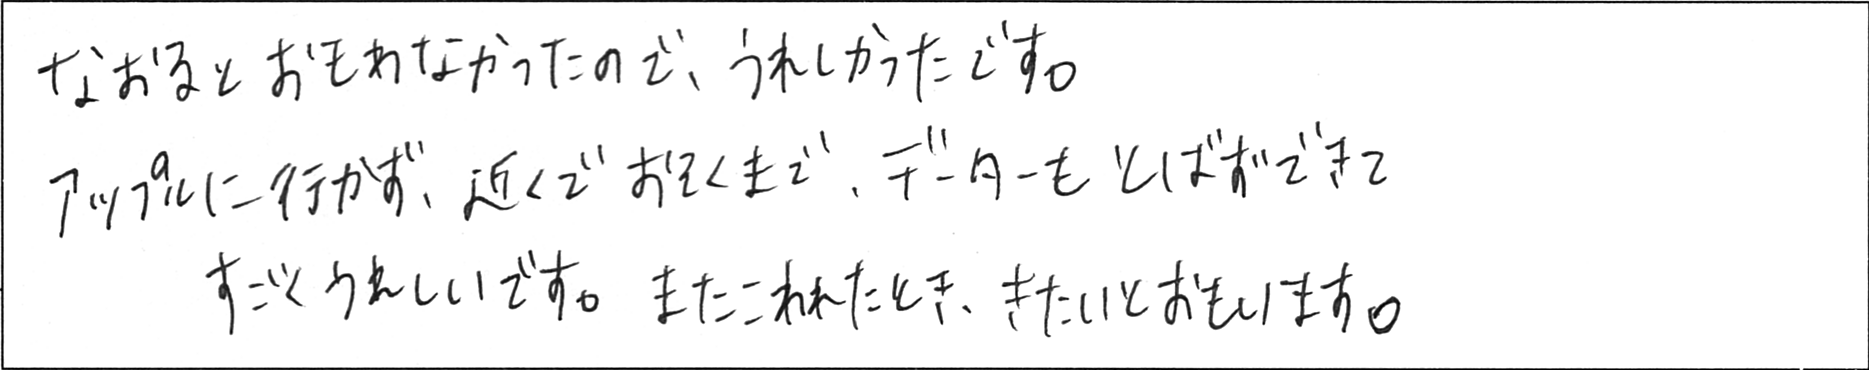 なおるとおもわなかったので、うれしかったです。
アップルに行かず、近くでおそくまで、データーもとばずできて
すごくうれしいです。またこわれたとき、きたいとおもいます。